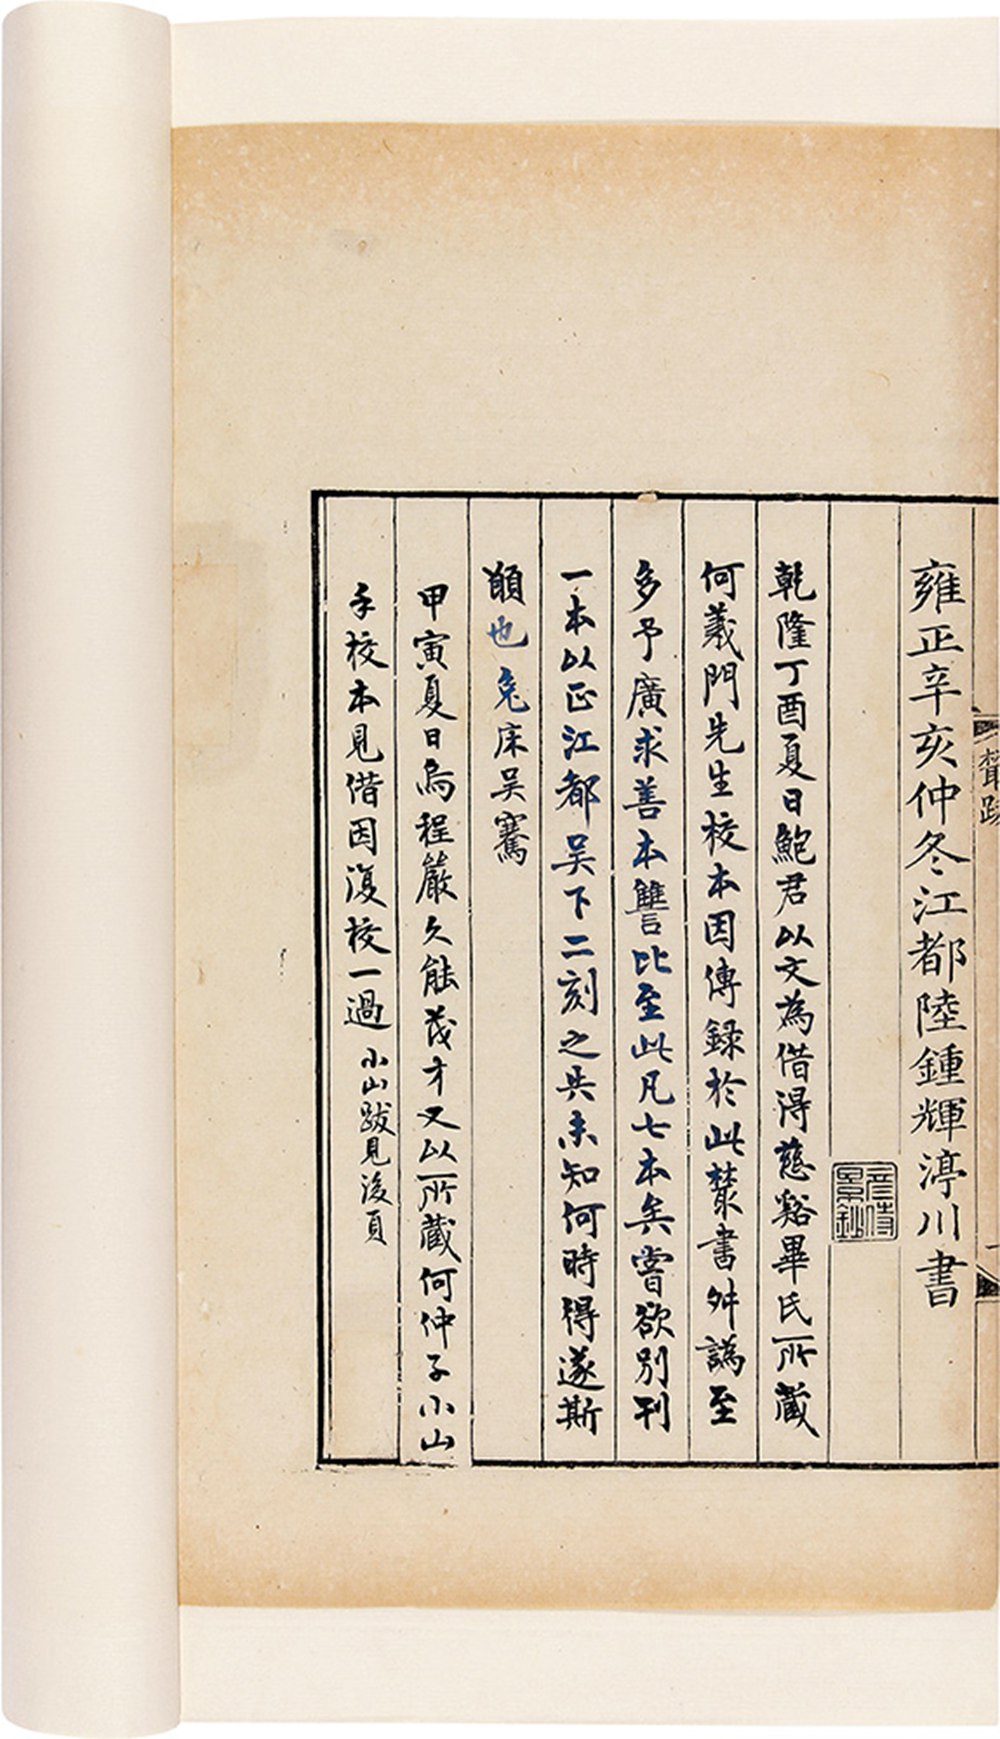 雍正辛亥仲冬江都陸鍾輝渟川書
彦侍景鈔
乾隆丁酉夏日鮑君以文為借得慈谿畢氏所蔵
何義門先生校本因傳録於此叢書舛譌至
多予廣求善本讐比至此凡七本矣嘗欲別刊
一本以正江都吴下二刻之共未知何時得遂斯
願也兔床吴騫
甲寅夏日烏程嚴久能茂才又以所蔵何仲子小山
手校本見借因復校一過小山跋見後頁